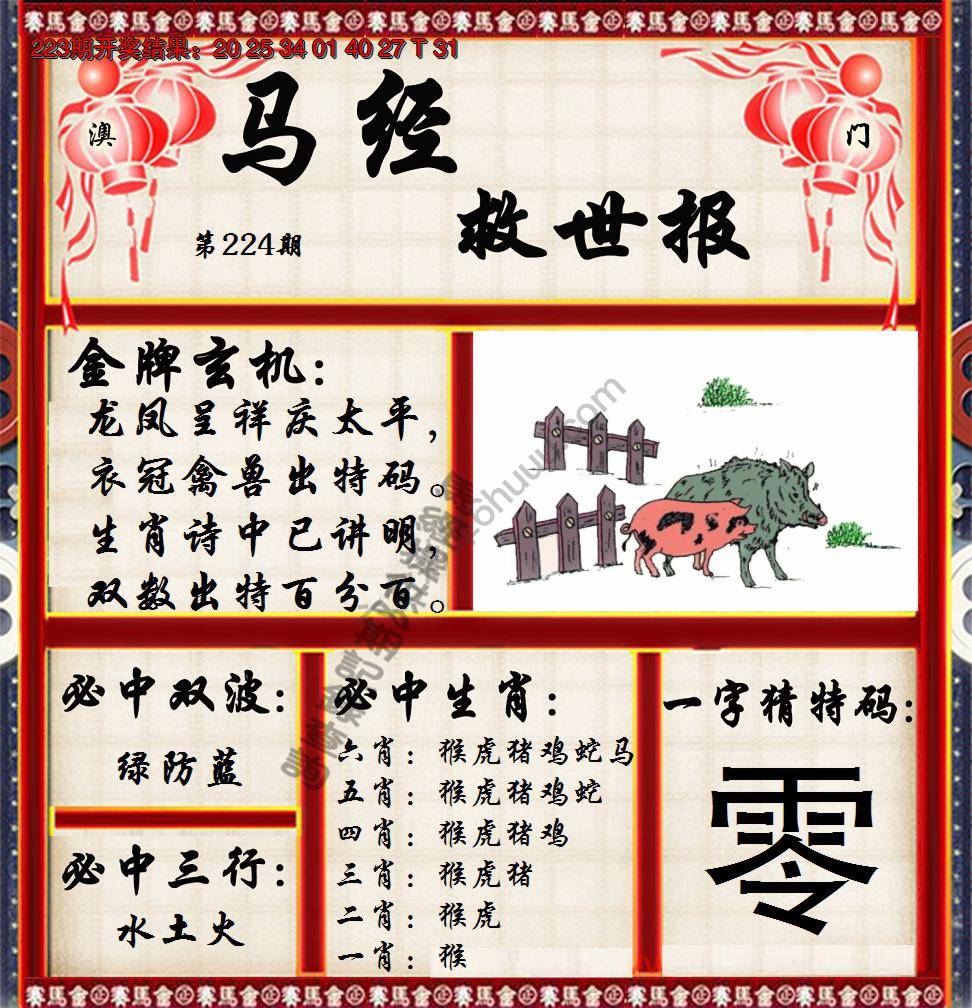 賽馬會 賽馬會 賽馬會 賽馬會 賽馬會 賽馬會 賽馬會 賽馬會 賽馬會
223期开奖结果：20 25 34 01 40 27 T 31
澳
门
马经
救世报
第224期
金牌玄机：
龙凤呈祥庆太平，
衣冠禽兽出特码。
生肖诗中已讲明，
双数出特百分百。
必中双波：
绿防蓝
必中三行：
水土火
必中生肖：
六肖：猴虎猪鸡蛇马
五肖：猴虎猪鸡蛇
四肖：猴虎猪鸡
三肖：猴虎猪
二肖：猴虎
一肖：猴
一字猜特码：
零